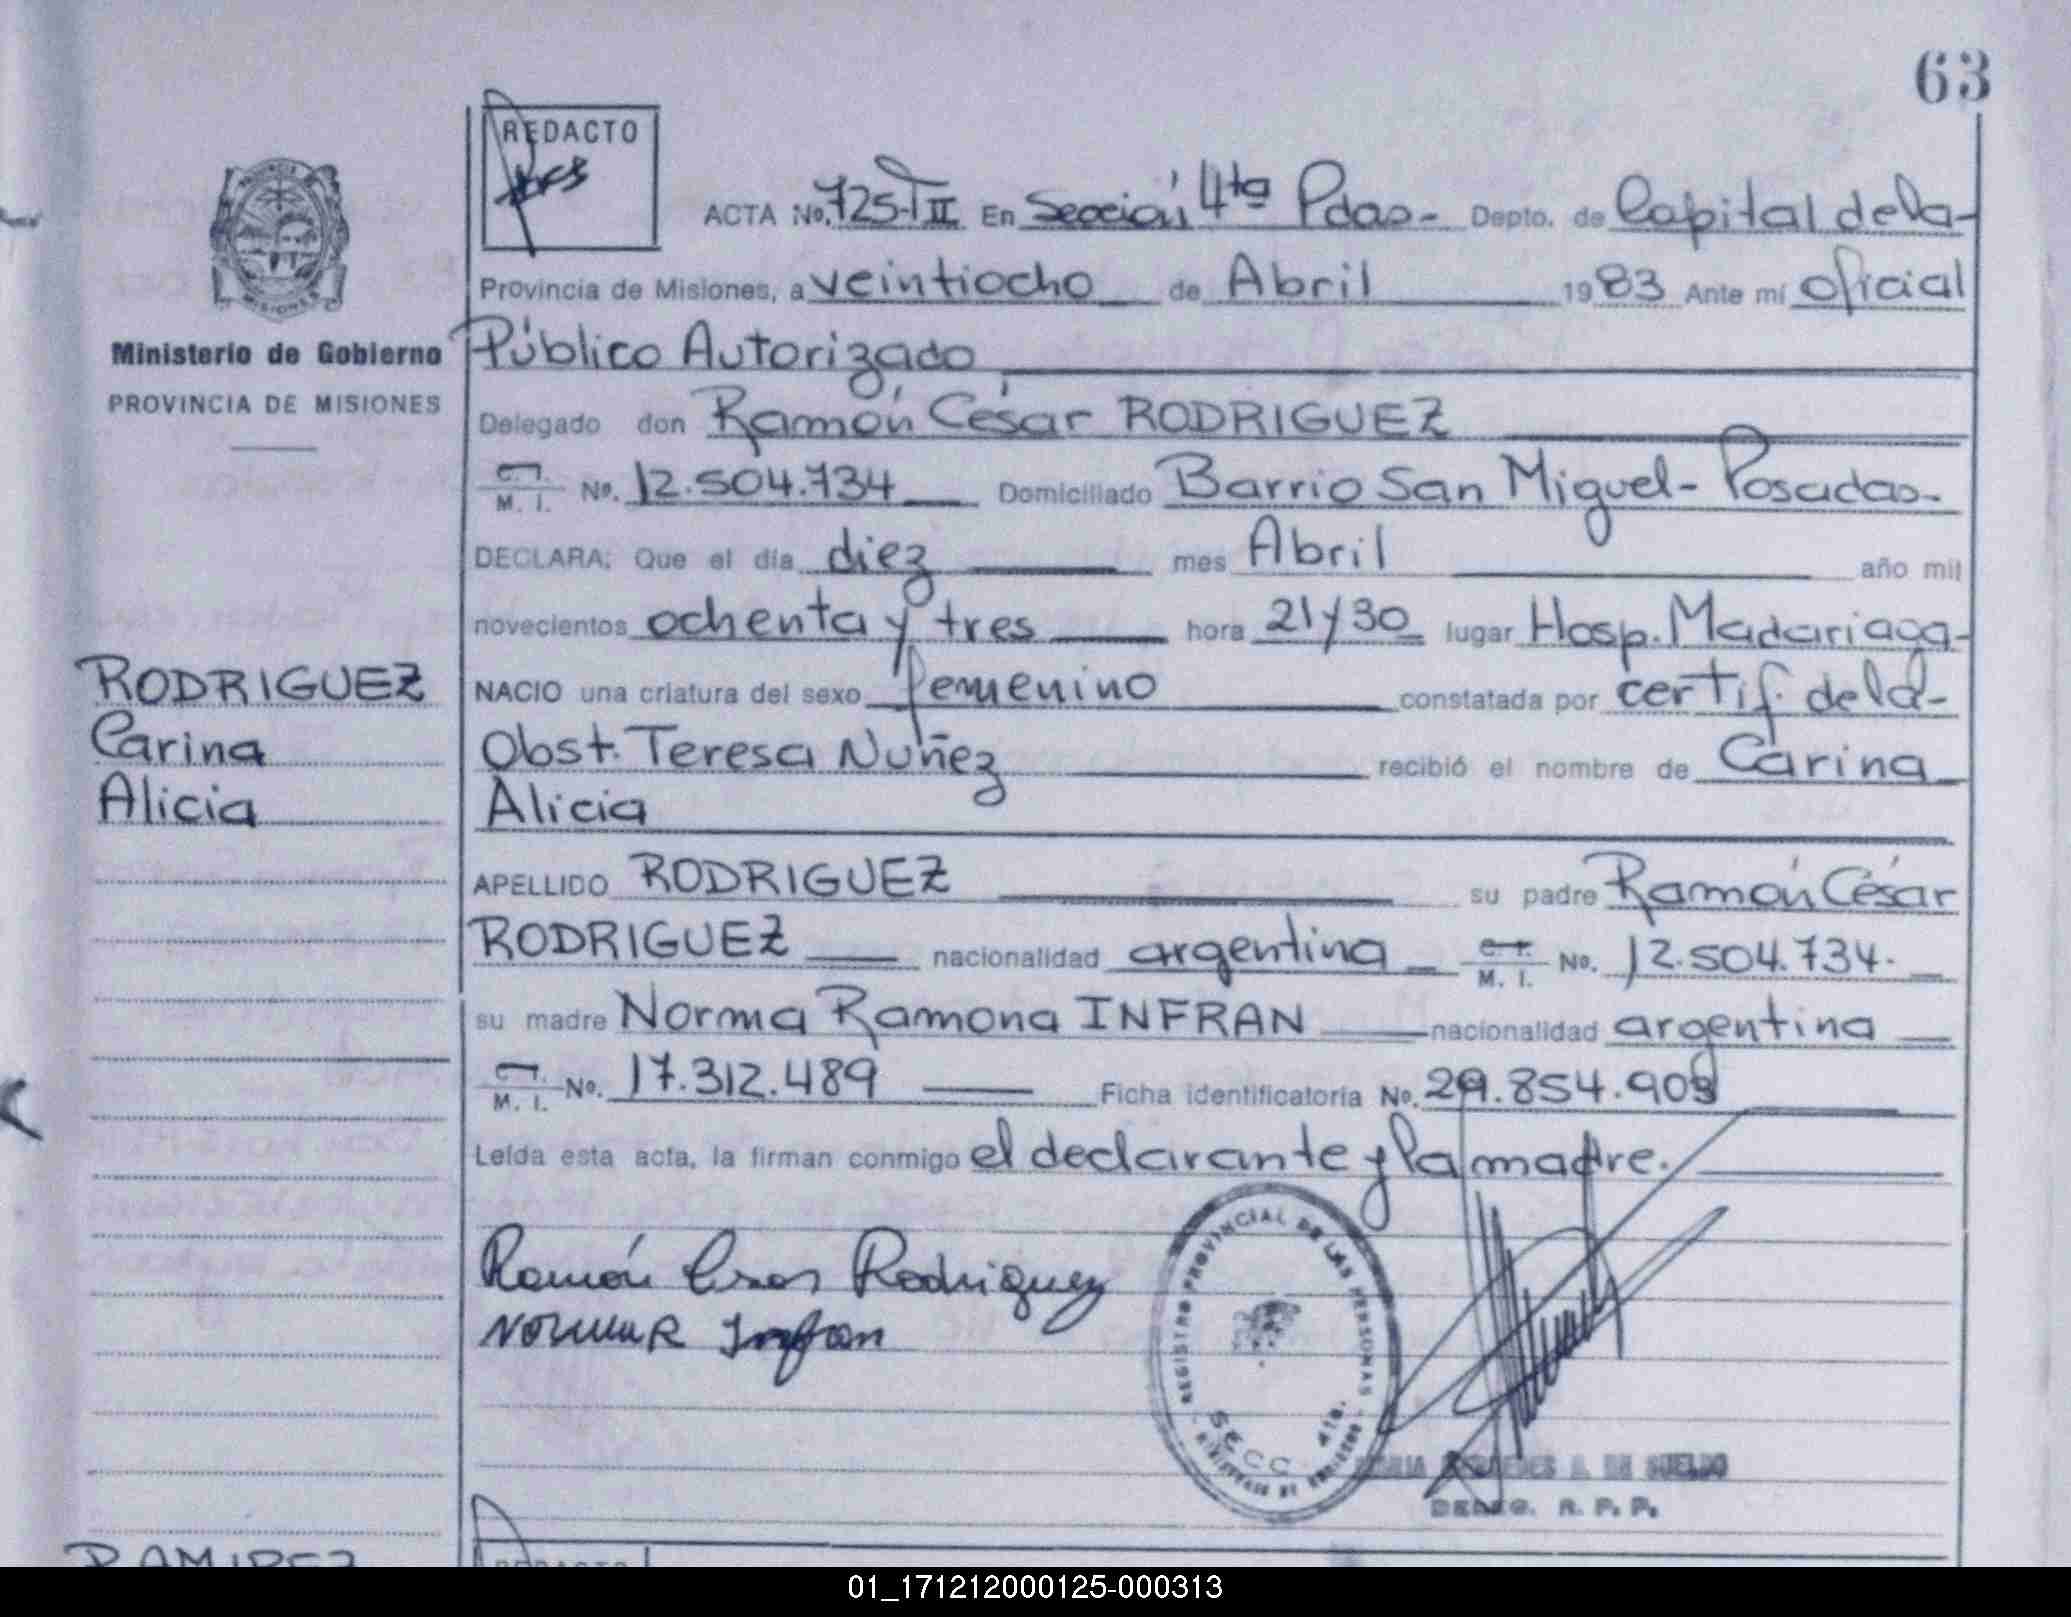 63
REDACTO
ACTA No. 725-T II En Sección 4ta Pdas- Depto. de Capital de la-
Provincia de Misiones, a veintiocho de Abril 1983 Ante mí oficial
Público Autorizado
Delegado don Ramón César RODRIGUEZ
C.I. M. I. No. 12.504.734 Domiciliado Barrio San Miguel- Posadas-
DECLARA: Que el día diez mes Abril año mil
novecientos ochenta y tres hora 21 y 30 lugar Hosp. Madariaga-
NACIO una criatura del sexo femenino constatada por certif. de la-
Obst. Teresa Nuñez recibió el nombre de Carina
Alicia
APELLIDO RODRIGUEZ su padre Ramón César
RODRIGUEZ nacionalidad argentina C.I. M. I. No. 12.504.734.
su madre Norma Ramona INFRAN nacionalidad argentina
C.I. M. I. No. 17.312.489 Ficha identificatoria No. 29.854.903
Leída esta acta, la firman conmigo el declarante y la madre.
Ramón Cesar Rodriguez
Norma R Infran
REGISTRO PROVINCIAL DE LAS PERSONAS
SECC. 4ta.
DE SUELDO
DELEG. R. P. P.
PROVINCIA DE
MISIONES
Ministerio de Gobierno
PROVINCIA DE MISIONES
RODRIGUEZ
Carina
Alicia
RAMIREZ
REDACTO
01_171212000125-000313